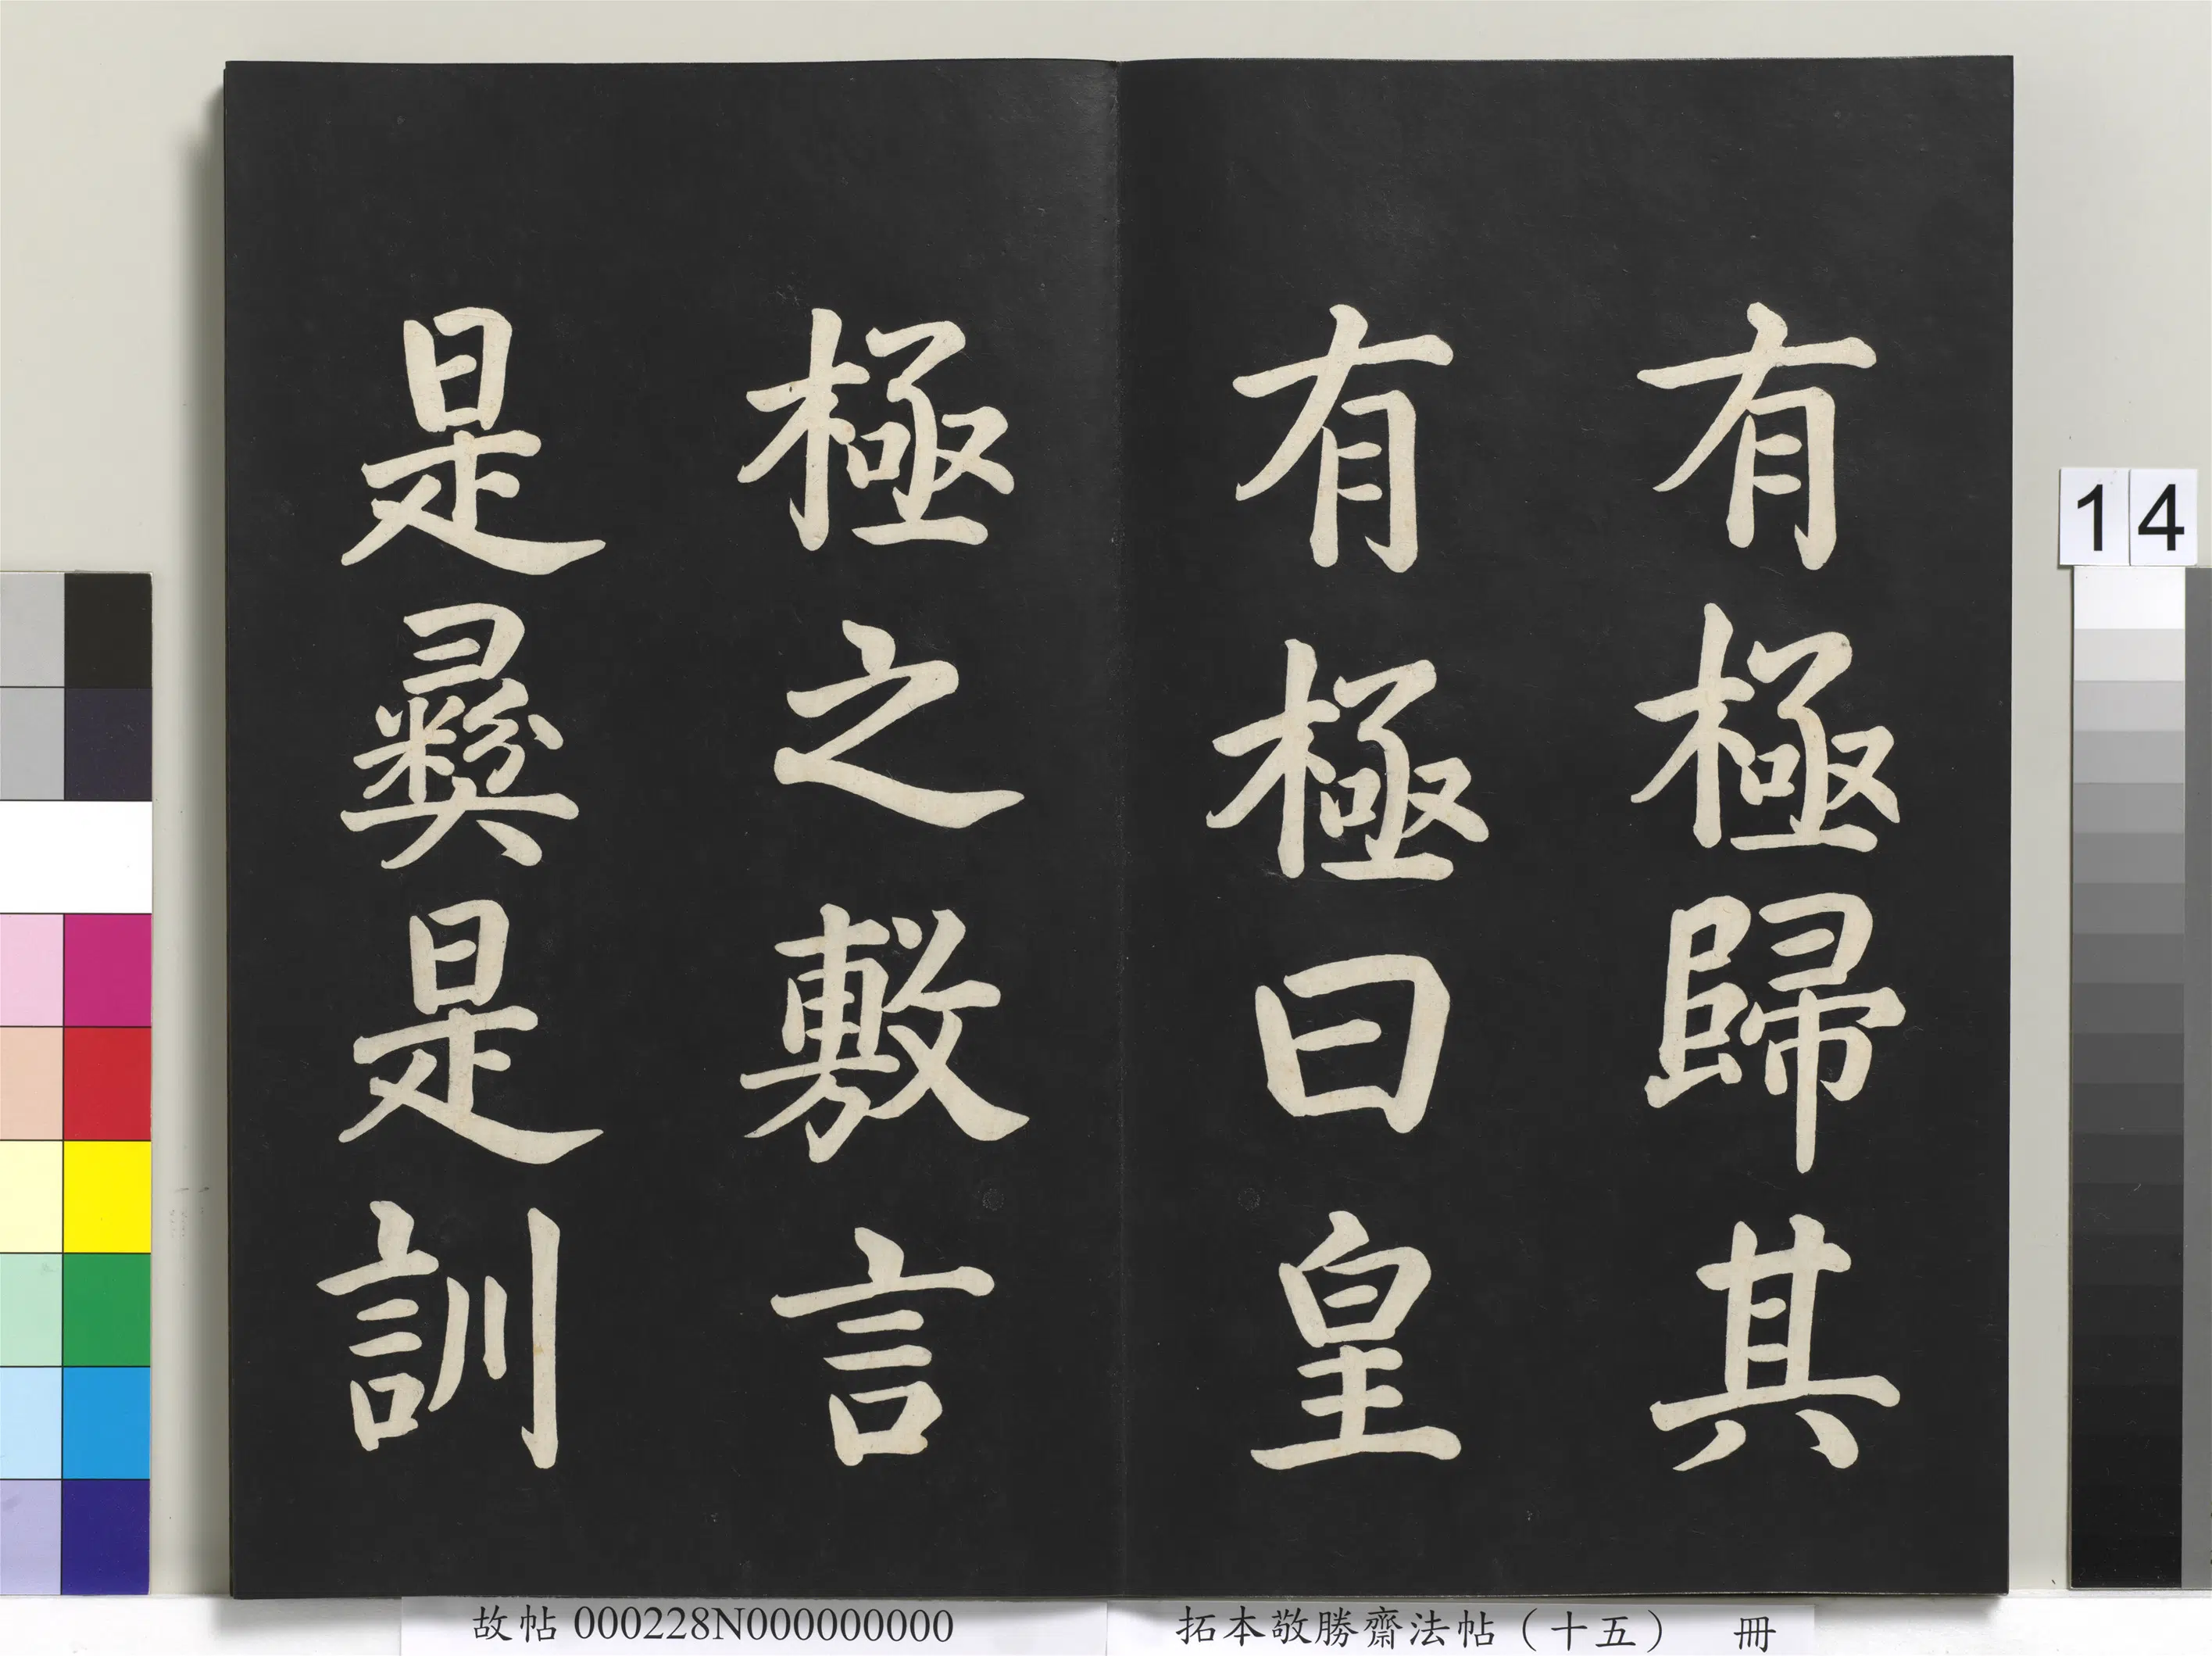 有極歸其
有極曰皇
極之敷言
是彝是訓
14
故帖 000228N000000000
拓本敬勝齋法帖（十五） 冊